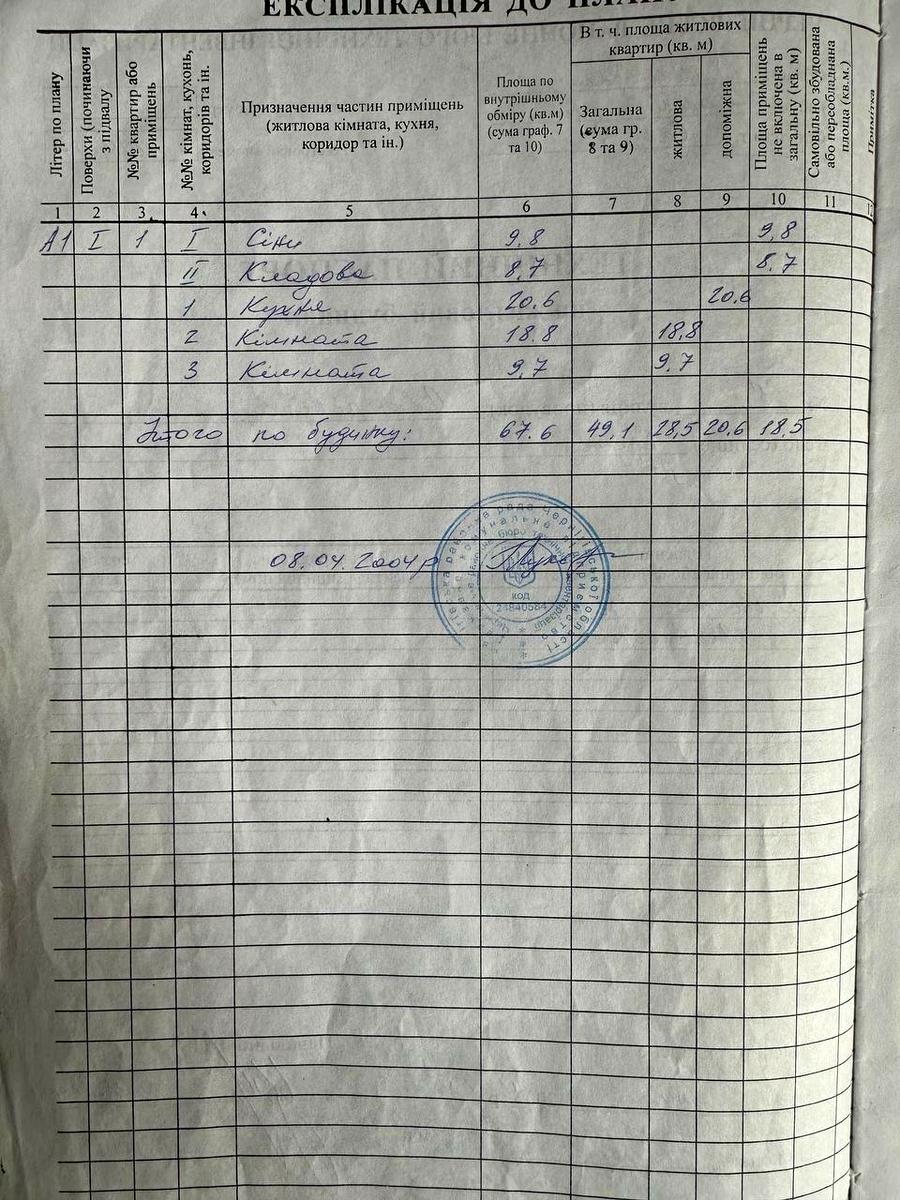 ЕКСПЛІКАЦІЯ ДО ПЛАН
Літер по плану
Поверхи (починаючи з підвалу
№№ квартир або приміщень
№№ кімнат, кухонь, коридорів та ін.
Призначення частин приміщень
(житлова кімната, кухня,
коридор та ін.)
Площа по
внутрішньому
обміру (кв.м)
(сума граф. 7
та 10)
В т. ч. площа житлових
квартир (кв. м)
Загальна
(сума гр.
8 та 9)
житлова
допоміжна
Площа приміщень не включена в загальну (кв. м)
Самовільно збудована або переобладнана площа (кв.м.)
Примітка
1 2 3 4 5 6 7 8 9 10 11
А1 I 1 I Сіни 9,8 9,8
II Кладова 8,7 8.7
1 Кухня 20,6 20,6
2 Кімната 18.8 18,8
3 Кімната 9,7 9,7
Итого по будинку: 67.6 49,1 28,5 20,6 18,5
08.04.2004р
код